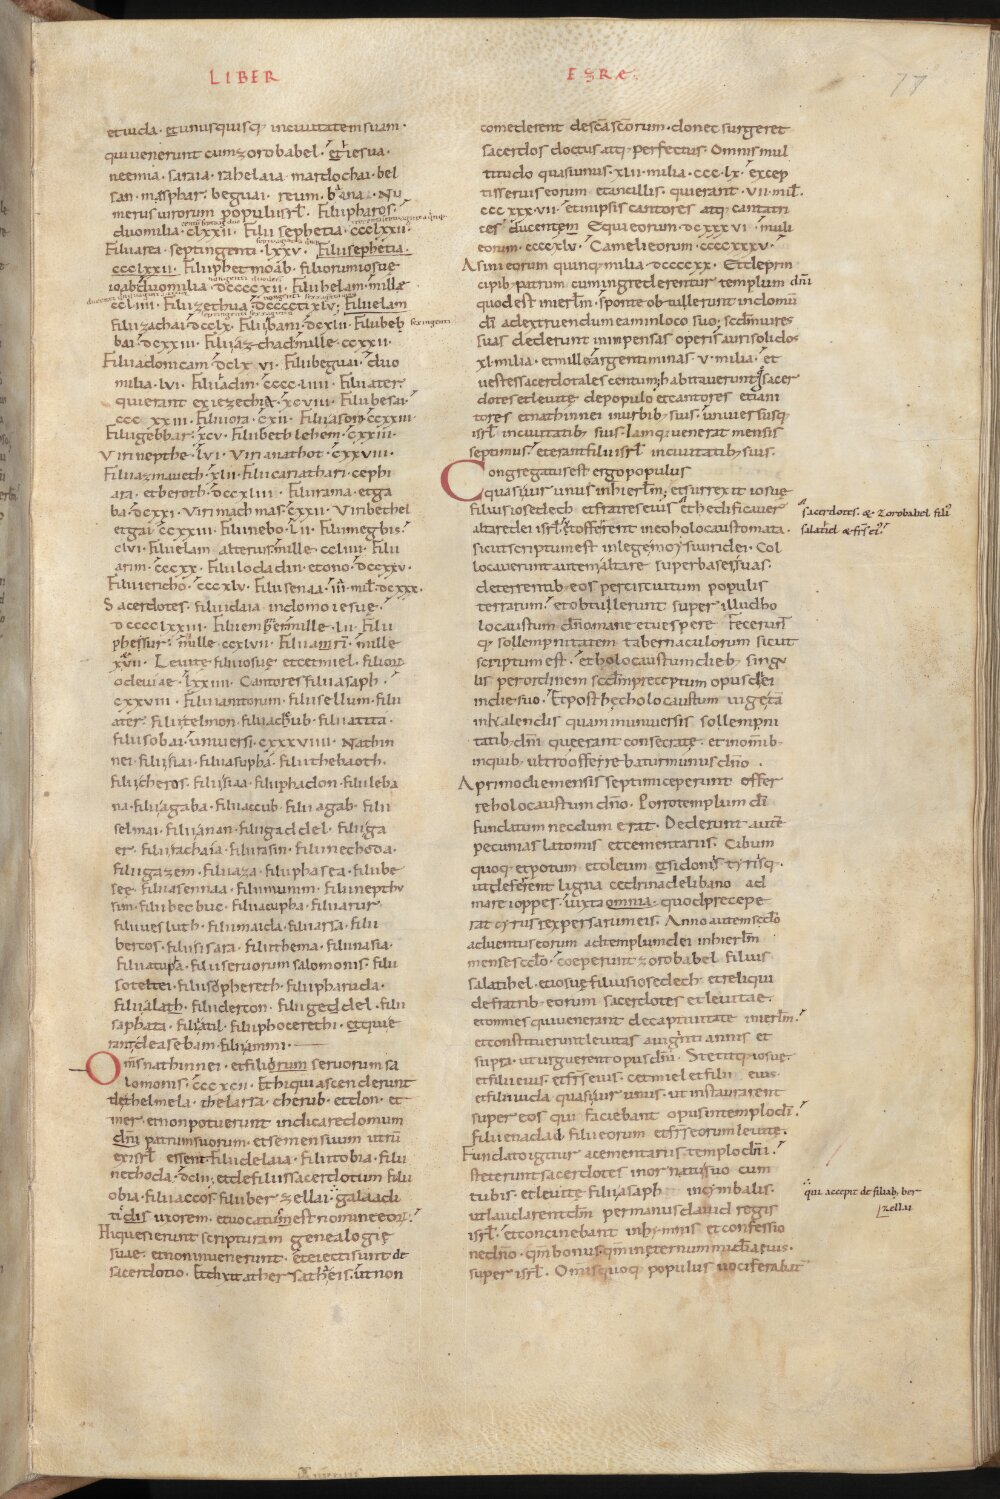 LIBER EZRÆ
77
et iuda · et unusquisq; in ciuitatem suam ·
qui uenerunt cum zorobabel · et iesua ·
neemia · saraia · rahelaia · mardochai · bel
san · masphar · beguai · reum · baana · Nu
merus uirorum populi isrl · Filii pharos ·
duo milia · clxxii · Filii sephetia · ccclxxii ·
Filii area · septingenti · lxxv · Filii sephetia ·
ccclxxii · Filii phetmoab · filiorum iosue
ioab duo milia · dccccxii · Filii helam · mille
ccliiii · Filii zethua · dccccxlv · Filii elam
filii zachai · dcclx · Filii bani · dcxlii · Filii beb
bai · dcxxiii · Filii azchad · mille · ccxxii ·
Filii adonicam · dclxvi · Filii beguai · duo
milia · lvi · Filii adin · cccc · liiii · Filii ater
qui erant ex iezechia · xcviii · Filii besai ·
ccc xxiii · Filii iora · cxii · Filii asom · ccxxiii ·
Filii gebbar · xcv · Filii bethlehem · cxxiii ·
Viri nepthe · lvi · Viri anathot · cxxviii ·
Filii azmaueth · xlii · Filii cariathari · cephi
ara · et beroth · dccxliii · Filii rama · et ga
ba · dcxxi · Viri machmas · cxxii · Viri bethel
et gai · ccxxiii · Filii nebo · lii · Filii megbis ·
clvi · Filii elam alterius · mille · ccliiii · Filii
arim · cccxx · Filii lod adid et ono · dccxxv ·
Filii iericho · cccxlv · Filii senaa · iii · mil · dcxxx ·
Sacerdotes · filii idaia in domo iesue ·
dcccclxxiii · Filii emmer · mille · lii · Filii
phessur · mille · ccxlvii · Filii arim · mille
xvii · Leuite filii iosue et cetmiel · filior
odeuiae · lxxiiii · Cantores filii asaph ·
cxxviii · Filii ianitorum · filii sellum · filii
ater · filii telmon · filii accub · filii atita ·
filii sobai · uniuersi · cxxxviiii · Nathin
nei · filii siai · filii asupha · filii thebaoth ·
filii cheros · filii siaa · filii phadon · filii leba
na · filii agaba · filii accub · filii agab · filii
selmai · filii anan · filii gaddel · filii ga
er · filii rachaia · filii rasin · filii nechoda ·
filii gazem · filii aza · filii phasea · filii be
see · filii asennaa · filii munim · filii nepthu
sim · filii becbuc · filii acupha · filii arur ·
filii uesluth · filii maida · filii arsa · filii
bercos · filii sisara · filii thema · filii nasia ·
filii atupa · filii seruorum salomonis · filii
soteltei · filii sophereth · filii pharuda ·
filii alath · filii dercon · filii geddel · filii
saphata · filii atil · filii phocerethi · et qui e
rant de asebam · filii ammi ·
Oms nathinnei · et filiorum seruorum sa
lomonis · cccxcii · Et hi qui ascenderunt
de thelmela · thelarsa · cherub · et don · et
mer · et non potuerunt indicare domum
dm patrum suorum · et semen suum utru
ex isrl essent · filii delaia · filii tobia · filii
nethoda · dclii · et de filiis sacerdotum filii
obia · filii accos filii berzellai · galaadi
tidis uxorem · et uocatum est nomine eor ·
Hi quesierunt scripturam genealogie
sue · et non inuenerunt · et eiecti sunt de
sacerdotio · Et dixit athersatha eis · ut non
comederent de sca scorum · donec surgeret
sacerdos doctus atq; perfectus · Omnis mul
titudo quasi unus · xlii · milia · ccc · lx · excep
tis seruis eorum et ancillis · qui erant · vii · mil ·
ccc xxx · vii · et in ipsis cantores atq; cantatri
ces ducentem Equi eorum · dcxxxvi · muli
eorum · cccc xlv · Cameli eorum · ccccxxxv ·
Asini eorum quinq; milia · dccccxx · Et de prin
cipib; patrum cum ingrederentur templum dni
quod est in ierlm · sponte obtullerunt in domum
di ad extruendum eam in loco suo · scdm uires
suas dederunt in impensas operis auri solidos
xl · milia · et mille argenti minas · v · milia · et
uestes sacerdotales centum · habitauerunt g sacer
dotes et leuite · de populo et cantores et iani
tores et nathinnei in urbib; suis · uniuersusq;
isrl in ciuitatib; suis · Iamq; uenerat mensis
septimus · et erant filii isrl in ciuitatib; suis ·
Congregatus est ergo populus
quasi uir unus in hierlm · et surrexit iosue
filius iosedech et fratres eius et hedificauer
altare dei isrl et offerent in eo holocaustomata ·
sicut scriptum est in lege moysi uiri dei · Col
locauerunt autem altare super bases suas ·
deterrentib; eos per circuitum populis
terrarum · et obtullerunt super illud ho
locaustum dno mane et uespere Fecerunt
q; sollempnitatem tabernaculorum sicut
scriptum est · et holocaustum dieb; singu
lis per ordinem scdm preceptum opus diei
in die suo · Et post hec holocaustum iuge tam
in kalendis quam in uniuersis sollempni
tatib; dni que erant consecrate · et in omnib;
in quib; ultro offerrebatur munus dno ·
A primo die mensis septimi ceperunt offer
re holocaustum dno · Porro templum di
fundatum necdum erat · Dederunt aute
pecunias latomis et cementariis · Cibum
quoq; et potum et oleum et sidoniis tyrisq;
ut deferent ligna cedrina de libano ad
mare ioppes · iuxta omnia quod precepe
rat cyrus rex persarum eis · Anno autem scdo
aduentus eorum ad templum dei in hierlm
mense scdo · coeperunt zorobabel filius
salatihel · et iosue filius iosedech et reliqui
de fratrib; eorum sacerdotes et leuitae ·
et omnes qui uenerant de captiuitate in ierlm ·
et constituerunt leuitas a uiginti annis et
supra · ut urguerent opus dni · Stetitq; iosue
et filii eius · et frs eius · cetmiel et filii eius
et filii iuda quasi uir unus · ut instaurarent
super eos qui faciebant opus in templo di ·
filii enadad filii eorum et frs eorum leuite ·
Fundato igitur a cementariis templo dni ·
steterunt sacerdotes in ornatu suo cum
tubis · et leuite filii asaph in cymbalis ·
ut laudarent dm per manus dauid regis
isrl · et concinebant in hymnis et confessio
ne dno · qm bonus · qm in eternum mida eius ·
super isrl · Omnisquoq; populus uociferabat
sacerdotes · & zorobabel filius
salathiel & frs ei
qui accepit de filiab; ber
zellai